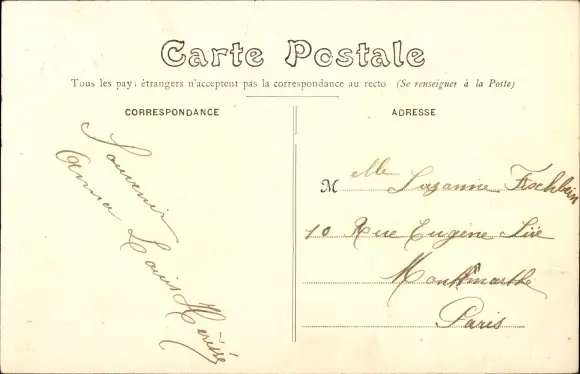 Carte Postale
Tous les pays étrangers n'acceptent pas la correspondance au recto (Se renseigner à la Poste)
CORRESPONDANCE
Souvenir
Louis
ADRESSE
M lle Suzanne Fischbein
10 Rue Eugène Süe
Montmarthe
Paris